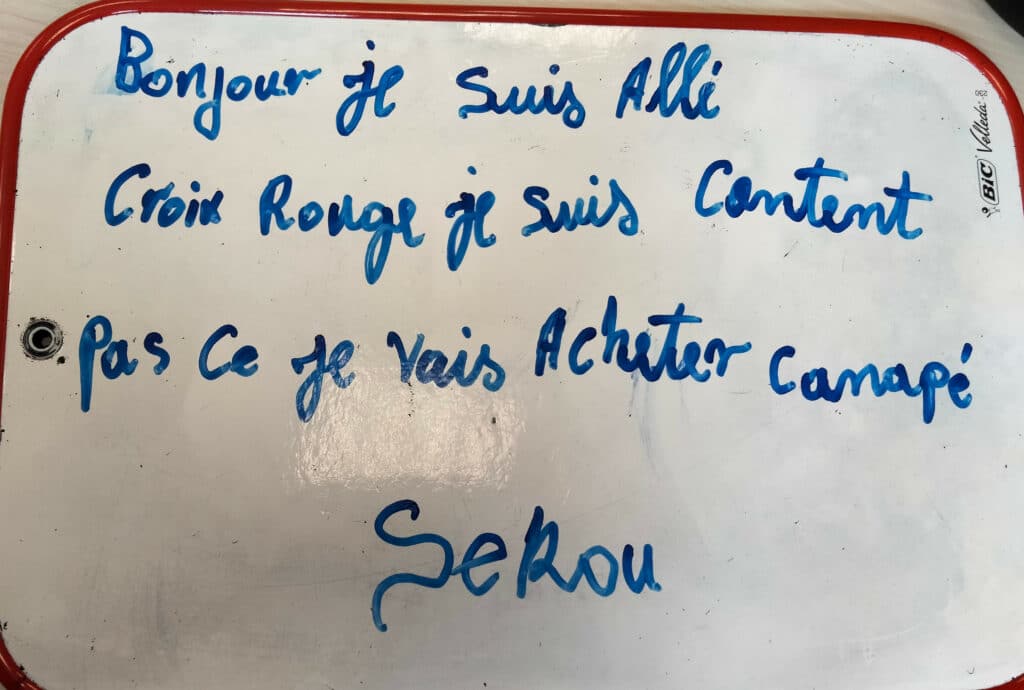 Bonjour je suis Allé
Croix Rouge je suis Content
Pas Ce je vais Acheter canapé
Sekou
BIC Velleda